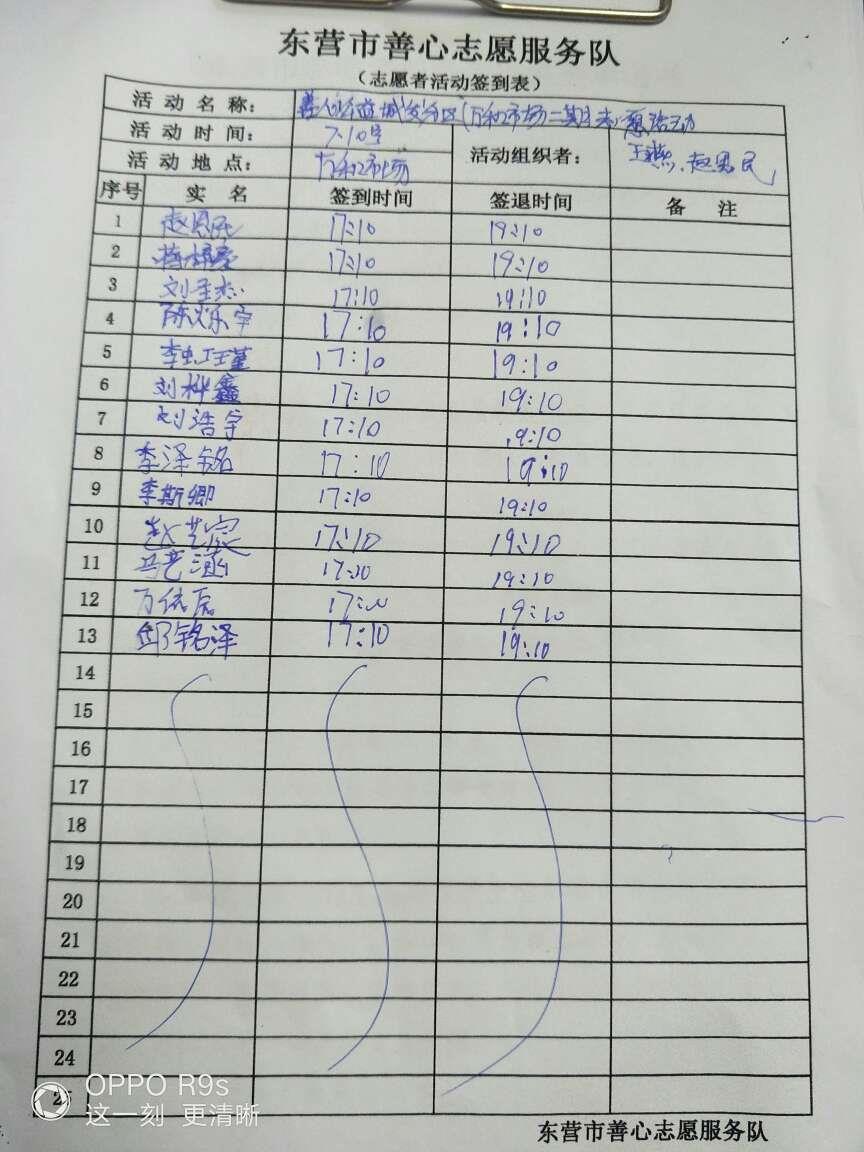 东营市善心志愿服务队
（志愿者活动签到表）
活动名称：
活动时间： 7.10号
活动地点： 万和市场 活动组织者： 王燕、赵恩民
序号 实名 签到时间 签退时间 备注
1 赵恩民 17:10 19:10
2 17:10 19:10
3 刘圣杰 17:10 19:10
4 陈烁宇 17:10 19:10
5 李虹瑾 17:10 19:10
6 刘桦鑫 17:10 19:10
7 刘浩宇 17:10 19:10
8 李泽铭 17:10 19:10
9 李斯卿 17:10 19:10
10 赵艺宸 17:10 19:10
11 马艺涵 17:10 19:10
12 万依辰 17:10 19:10
13 邱铭泽 17:10 19:10
14
15
16
17
18
19
20
21
22
23
24
25
OPPO R9s
这一刻 更清晰
东营市善心志愿服务队